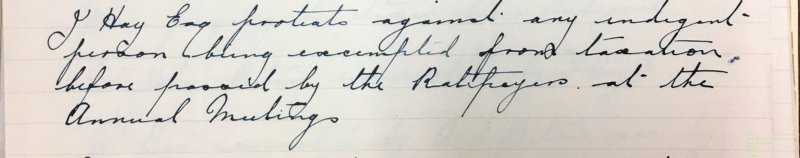 J Hay Esq protests against any indigent
person being excempted from taxation
before passed by the Ratepayers at the
Annual Meetings